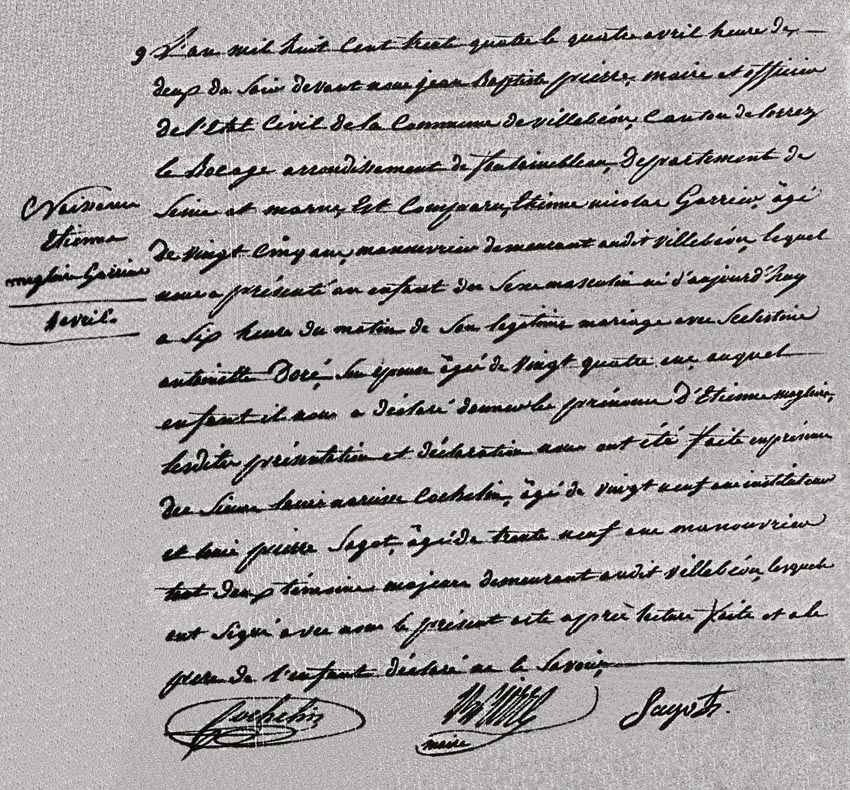 9 L'an mil huit Cent trente quatre le quatre avril heure de
deux du Soir devant nous jean Baptiste pierre, maire et officier
de l'Etat Civil de la Commune de villebéon, Canton de Lorrez
le Bocage arrondissement de fontainebleau, Departement de
Seine et marne, Est Comparu, Etienne nicolas Garrier, âgé
De vingt Cinq ans, manouvrier demeurant audit villebéon, lequel
nous a présenté un enfant du Sexe masculin né d'aujourd'huy
a Six heure du matin de Son legitime mariage avec Scelestine
antoinette Doré, Son épouse âgée de vingt quatre ans, auquel
enfant il nous a déclaré donner les prénoms D'Etienne magloire,
lesdites présentation et déclaration nous ont été faite en présence
des Sieurs louis narcisse Cochelin, âgé de vingt neuf ans instituteur
et louis pierre Sagot, âgé de trente neuf ans manouvrier
tout deux témoins majeurs demeurant audit villebéon, lesquels
ont Signé avec nous le présent acte après lecture faite et a le
pere de l'enfant déclaré ne le Savoir
Naissance
Etienne
magloire Garrier
4 avril.
Cochelin
pierre
maire
Sagot